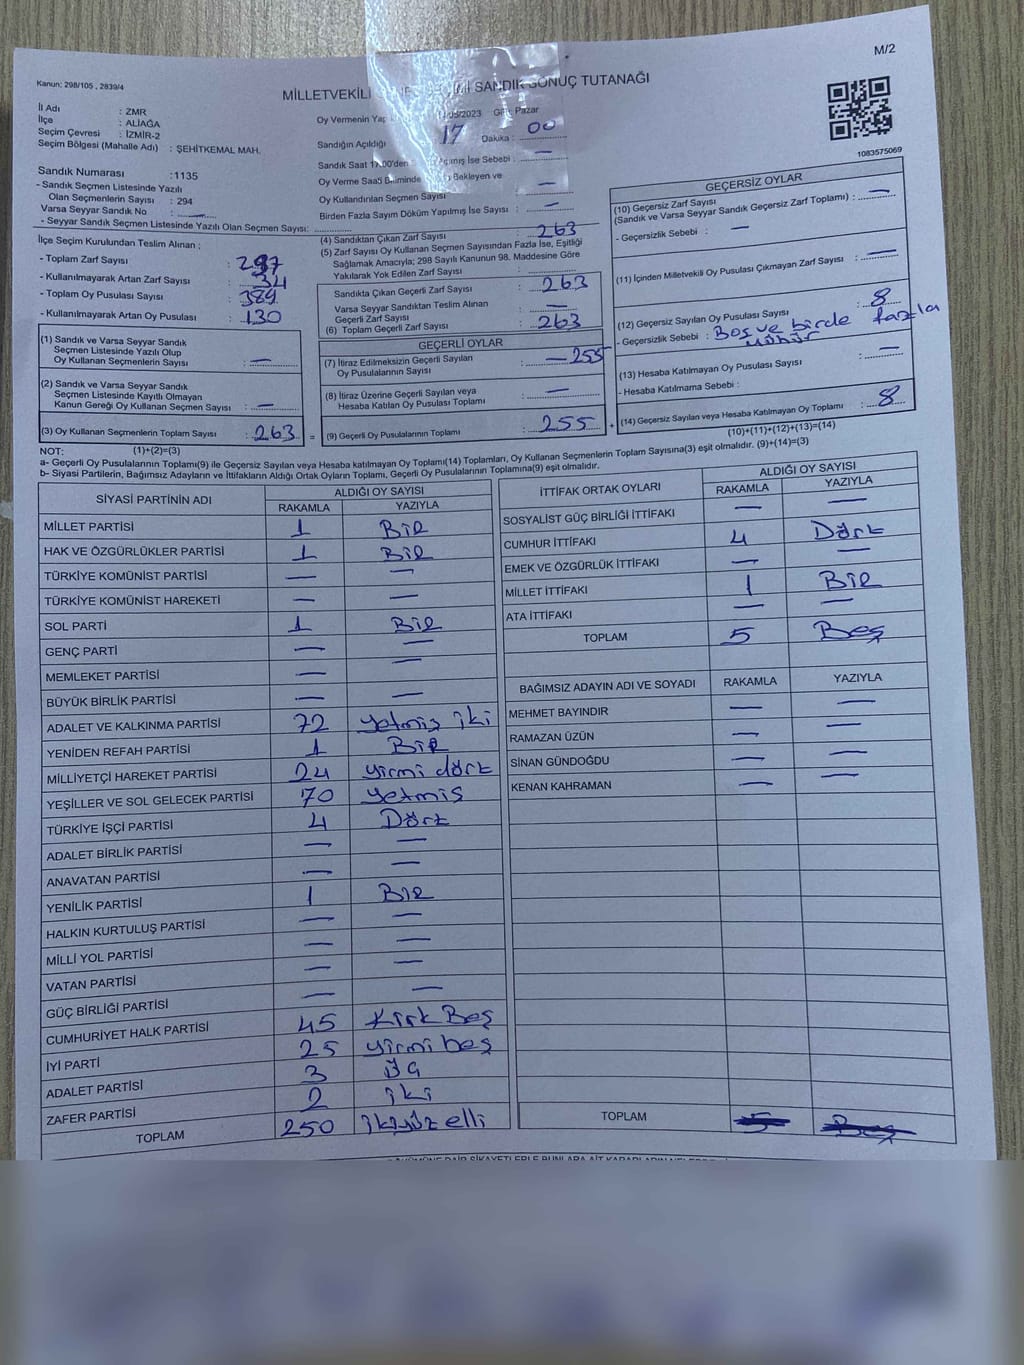 M/2
Kanun: 298/105 , 2839/4
MİLLETVEKİLİ SANDIK SONUÇ TUTANAĞI
İl Adı : ZMR
İlçe : ALİAĞA
Seçim Çevresi : İZMİR-2
Seçim Bölgesi (Mahalle Adı) : ŞEHİTKEMAL MAH.
Sandık Numarası :1135
- Sandık Seçmen Listesinde Yazılı
Olan Seçmenlerin Sayısı : 294
Varsa Seyyar Sandık No : —
- Seyyar Sandık Seçmen Listesinde Yazılı Olan Seçmen Sayısı:
Oy Vermenin /2023 Pazar
Sandığın Açıldığı 17 Dakika : 00
Sandık Saat 17.00'den mış İse Sebebi : —
Oy Verme Bekleyen ve
Oy Kullandırılan Seçmen Sayısı : —
Birden Fazla Sayım Döküm Yapılmış İse Sayısı : —
1083575069
İlçe Seçim Kurulundan Teslim Alınan ;
- Toplam Zarf Sayısı :
- Kullanılmayarak Artan Zarf Sayısı : 34
- Toplam Oy Pusulası Sayısı : 389
- Kullanılmayarak Artan Oy Pusulası : 130
(1) Sandık ve Varsa Seyyar Sandık
Seçmen Listesinde Yazılı Olup
Oy Kullanan Seçmenlerin Sayısı : —
(2) Sandık ve Varsa Seyyar Sandık
Seçmen Listesinde Kayıtlı Olmayan
Kanun Gereği Oy Kullanan Seçmen Sayısı : —
(3) Oy Kullanan Seçmenlerin Toplam Sayısı : 263 =
(4) Sandıktan Çıkan Zarf Sayısı : 263
(5) Zarf Sayısı Oy Kullanan Seçmen Sayısından Fazla İse, Eşitliği
Sağlamak Amacıyla; 298 Sayılı Kanunun 98. Maddesine Göre
Yakılarak Yok Edilen Zarf Sayısı :
Sandıkta Çıkan Geçerli Zarf Sayısı : 263
Varsa Seyyar Sandıktan Teslim Alınan
Geçerli Zarf Sayısı : —
(6) Toplam Geçerli Zarf Sayısı : 263
GEÇERLİ OYLAR
(7) İtiraz Edilmeksizin Geçerli Sayılan
Oy Pusulalarının Sayısı : 255
(8) İtiraz Üzerine Geçerli Sayılan veya
Hesaba Katılan Oy Pusulası Toplamı : —
(9) Geçerli Oy Pusulalarının Toplamı : 255 +
GEÇERSİZ OYLAR
(10) Geçersiz Zarf Sayısı
(Sandık ve Varsa Seyyar Sandık Geçersiz Zarf Toplamı) : —
- Geçersizlik Sebebi : —
(11) İçinden Milletvekili Oy Pusulası Çıkmayan Zarf Sayısı : —
(12) Geçersiz Sayılan Oy Pusulası Sayısı : 8
- Geçersizlik Sebebi : Boş ve birde fazla
mühür
(13) Hesaba Katılmayan Oy Pusulası Sayısı : —
- Hesaba Katılmama Sebebi :
(14) Geçersiz Sayılan veya Hesaba Katılmayan Oy Toplamı : 8
(10)+(11)+(12)+(13)=(14)
NOT: (1)+(2)=(3)
a- Geçerli Oy Pusulalarının Toplamı(9) ile Geçersiz Sayılan veya Hesaba katılmayan Oy Toplamı(14) Toplamları, Oy Kullanan Seçmenlerin Toplam Sayısına(3) eşit olmalıdır. (9)+(14)=(3)
b- Siyasi Partilerin, Bağımsız Adayların ve İttifakların Aldığı Ortak Oyların Toplamı, Geçerli Oy Pusulalarının Toplamına(9) eşit olmalıdır.
SİYASİ PARTİNİN ADI ALDIĞI OY SAYISI
RAKAMLA YAZIYLA
MİLLET PARTİSİ 1 Bir
HAK VE ÖZGÜRLÜKLER PARTİSİ 1 Bir
TÜRKİYE KOMÜNİST PARTİSİ — —
TÜRKİYE KOMÜNİST HAREKETİ — —
SOL PARTİ 1 Bir
GENÇ PARTİ — —
MEMLEKET PARTİSİ — —
BÜYÜK BİRLİK PARTİSİ — —
ADALET VE KALKINMA PARTİSİ 72 yetmiş iki
YENİDEN REFAH PARTİSİ 1 Bir
MİLLİYETÇİ HAREKET PARTİSİ 24 yirmi dört
YEŞİLLER VE SOL GELECEK PARTİSİ 70 yetmiş
TÜRKİYE İŞÇİ PARTİSİ 4 Dört
ADALET BİRLİK PARTİSİ — —
ANAVATAN PARTİSİ — —
YENİLİK PARTİSİ 1 Bir
HALKIN KURTULUŞ PARTİSİ — —
MİLLİ YOL PARTİSİ — —
VATAN PARTİSİ — —
GÜÇ BİRLİĞİ PARTİSİ — —
CUMHURİYET HALK PARTİSİ 45 Kırk Beş
İYİ PARTİ 25 yirmi beş
ADALET PARTİSİ 3 üç
ZAFER PARTİSİ 2 iki
TOPLAM 250 ikiyüz elli
İTTİFAK ORTAK OYLARI ALDIĞI OY SAYISI
RAKAMLA YAZIYLA
SOSYALİST GÜÇ BİRLİĞİ İTTİFAKI — —
CUMHUR İTTİFAKI 4 Dört
EMEK VE ÖZGÜRLÜK İTTİFAKI — —
MİLLET İTTİFAKI 1 Bir
ATA İTTİFAKI — —
TOPLAM 5 Beş
BAĞIMSIZ ADAYIN ADI VE SOYADI RAKAMLA YAZIYLA
MEHMET BAYINDIR — —
RAMAZAN ÜZÜN — —
SİNAN GÜNDOĞDU — —
KENAN KAHRAMAN — —
TOPLAM 5 Beş